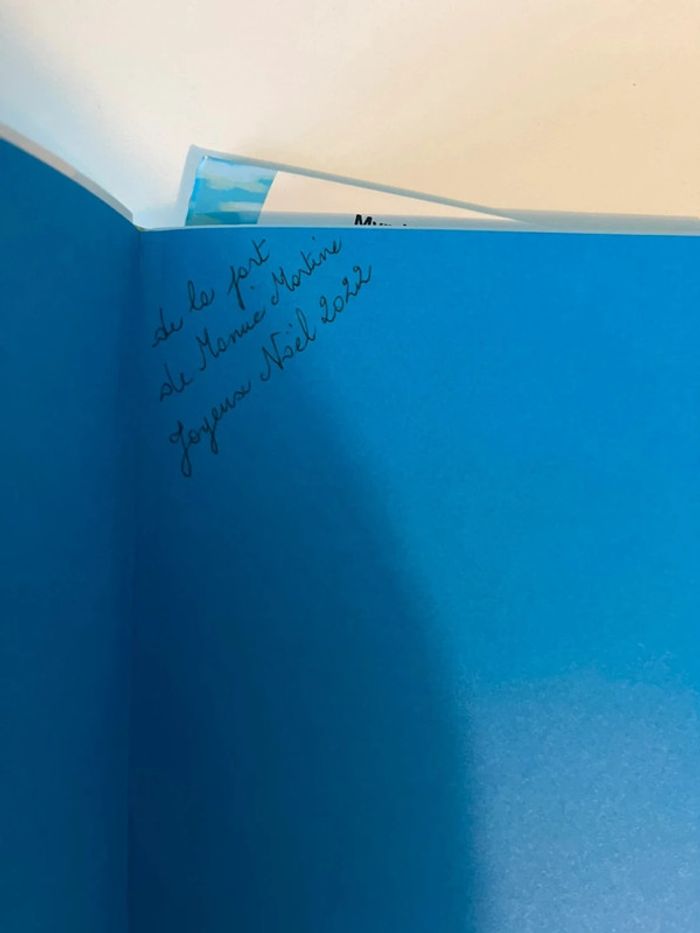 de la part
de Manue Martine
Joyeux Noël 2022